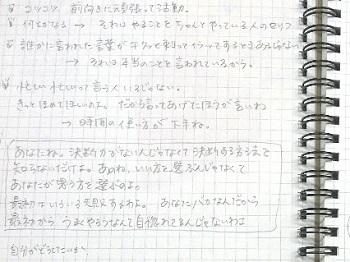 コツコツ 前向きに頑張って活動。
何とかなる → それはやることをちゃんとやっている人のセリフ
誰かに言われた言葉がチクッと刺ってイラッてするときあるじゃない
→ それは本当のことを言われているから。
忙しい忙しいって言う人いるじゃない。
きっとほめてほしいのよ。だから言ってあげたほうがいいわ
→ 時間の使い方が下手ね。
あなたね。決断力がないんじゃなくて決断する方法を
知らないだけよ。あのね、いい方を選ぶんじゃなくて
あなたが思う方を選ぶのよ。
最初はいろいろ失敗するわよ。あなたバカなんだから
最初からうまくやろうなんて自惚れてるんじゃないわよ
自分がどうしたいか